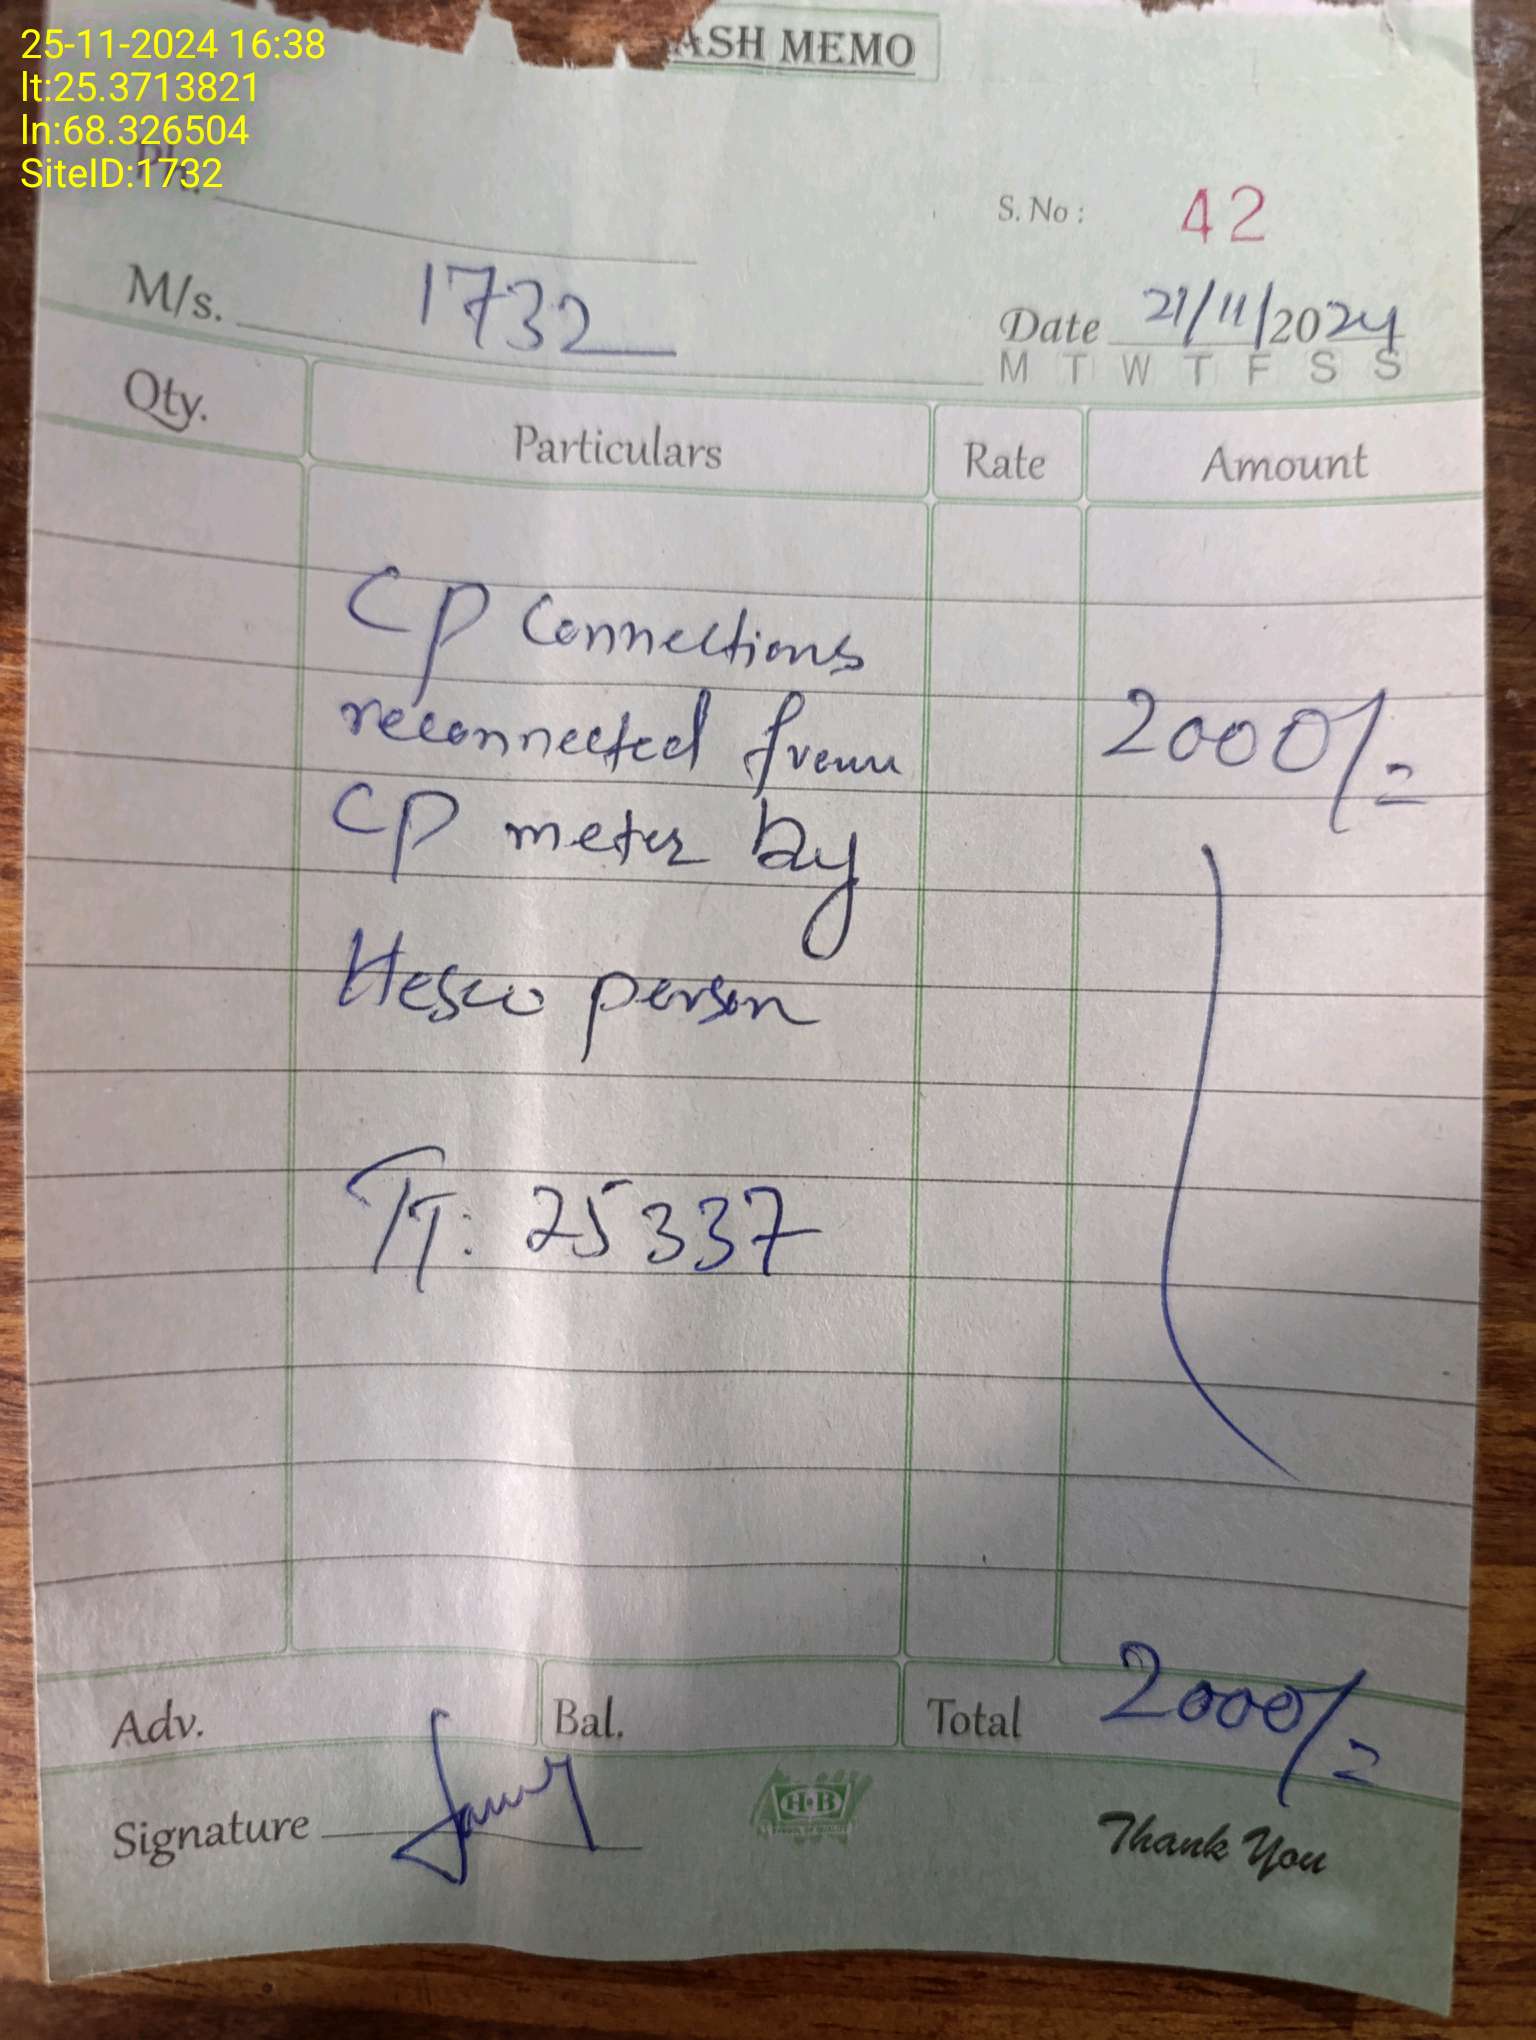 25-11-2024 16:38
lt:25.3713821
ln:68.326504
SiteID:1732
ASH MEMO
Ph.
S. No : 42
M/s. 1732
Date 21/11/2024
M T W T F S S
Qty. Particulars Rate Amount
CP Connections
reconnected from 2000/=
CP meter by
Hesco person
TT: 25337
Adv. Bal. Total 2000/=
H·B
Signature
Thank You